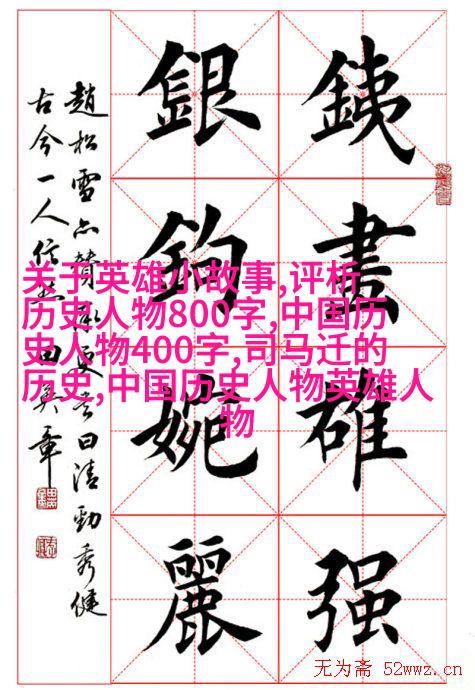 銕畫雄强
銀鉤婉麗
趙松雪亦贊率更書曰清勁秀健
古今一人信然 田英章
关于英雄小故事,评析
历史人物800字,中国历
史人物400字,司马迁的
历史,中国历史人物英雄人
物
无为斋 52wwz.cn